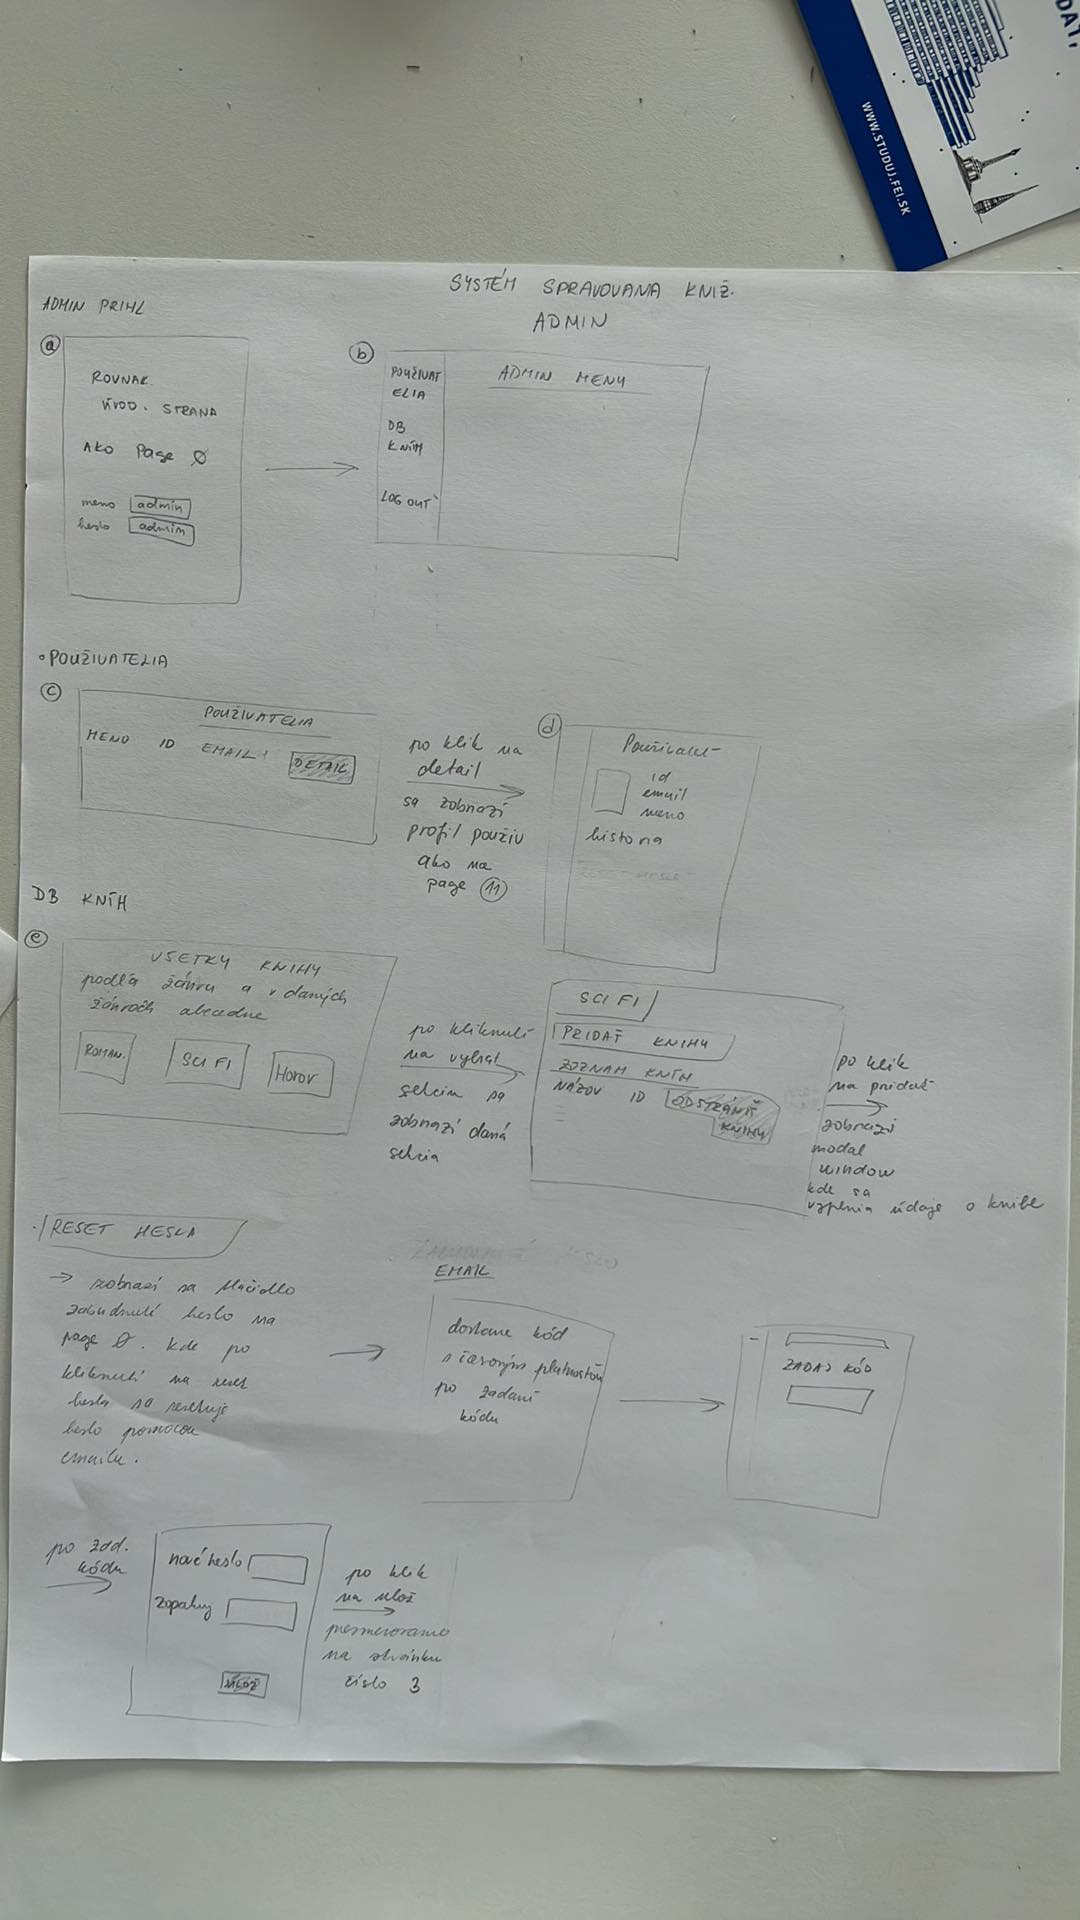 DAT,
WWW.STUDUJ.FEI.SK
SYSTÉM SPRAVOVANA KNIŽ.
ADMIN
ADMIN PRIHL
a
ROVNAK.
ÚVOD. STRANA
AKO Page 0
meno admin
heslo admin
b
POUŽIVAT
ELIA
DB
KNÍH
LOG OUT
ADMIN MENU
• POUŽIVATELIA
c
POUŽIVATELIA
MENO ID EMAIL DETAIL
po klik na
detail
sa zobrazí
profil použív
ako na
page 11
d
Používateľ
id
email
meno
historia
DB KNÍH
e
VŠETKY KNIHY
podľa žánru a v daných
žánroch abecedne
ROMAN.
SCI FI
Horor
po kliknutí
na vybrať
sekciu sa
zobrazí daná
sekcia
SCI FI
PRIDAŤ KNIHY
ZOZNAM KNÍH
NÁZOV ID ODSTRÁNIŤ
KNIHY
po klik
na pridať
zobrazí
modal
window
kde sa
vyplnia údaje o knihe
RESET HESLA
→ zobrazí sa tlačidlo
zabudnuté heslo na
page 0. kde po
kliknutí na reset
hesla sa resetuje
heslo pomocou
emailu.
EMAIL
dostane kód
s časovým platnosťou
po zadaní
kódu
ZADAJ KÓD
po zad.
kódu
nové heslo
zopakuj
ULOŽ
po klik
na ulož
presmerovanie
na stránku
číslo 3